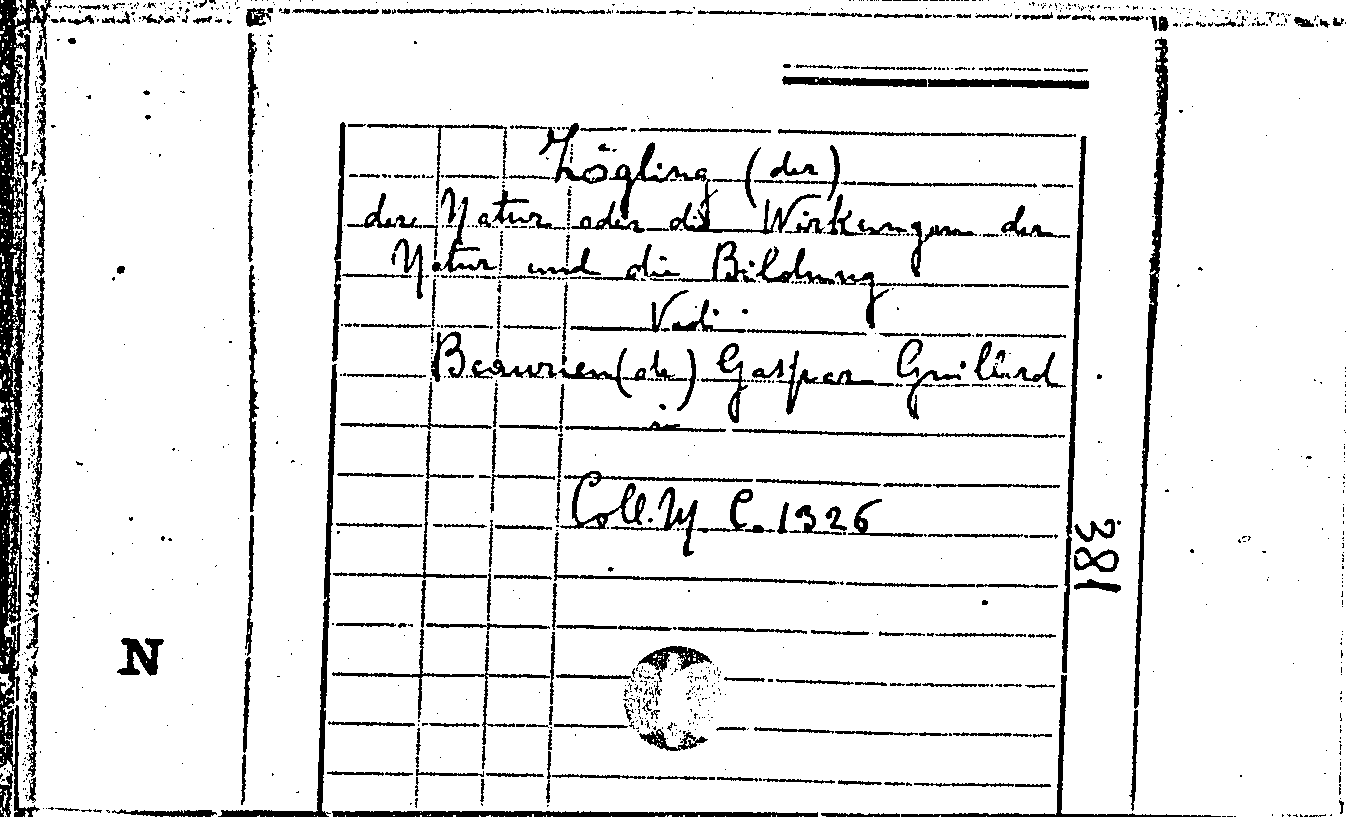 Zögling (der)
der Natur oder die Wirkungen der
Natur und die Bildung
Vedi
Beaurieu (de) Gaspar Guillard
Coll. M C. 1326
381
N